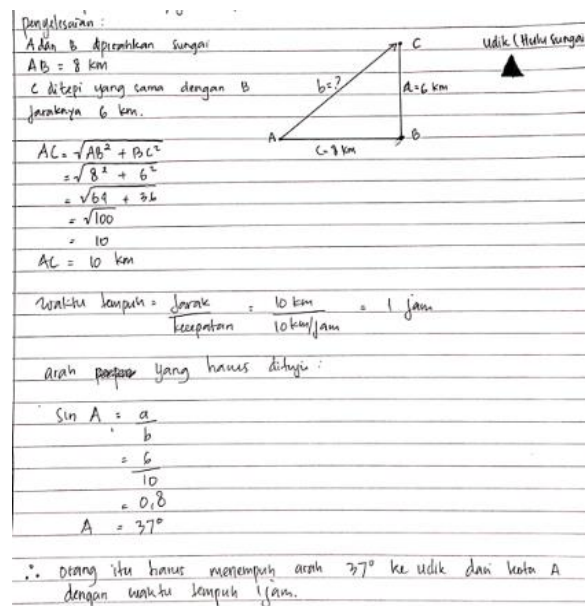 Penyelesaian :
A dan B dipisahkan sungai
AB = 8 km
C ditepi yang sama dengan B
Jaraknya 6 km.
C
udik (Hulu Sungai
b=?
a=6 km
A
B
C=8 km
AC = √AB² + BC²
= √8² + 6²
= √64 + 36
= √100
= 10
AC = 10 km
Waktu tempuh = Jarak / kecepatan = 10 km / 10 km/jam = 1 jam
arah yang harus dituju :
Sin A = a / b
= 6 / 10
= 0,8
A = 37°
∴ orang itu harus menempuh arah 37° ke udik dari kota A
dengan waktu tempuh 1 jam.